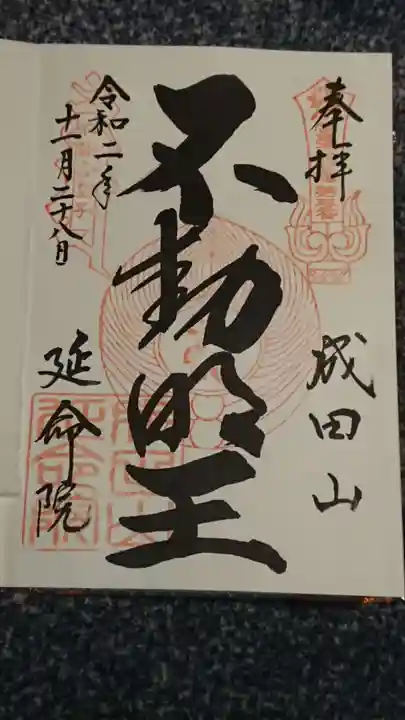 奉拝
成田山
不動明王
令和二年
十一月二十八日
延命院